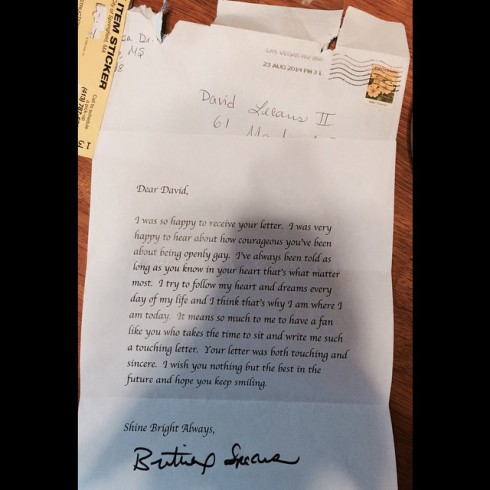 ITEM STICKER
LAS VEGAS NV 890
23 AUG 2014 PM 3 L
David
II
61
Dear David,
I was so happy to receive your letter. I was very
happy to hear about how courageous you've been
about being openly gay. I've always been told as
long as you know in your heart that's what matter
most. I try to follow my heart and dreams every
day of my life and I think that's why I am where I
am today. It means so much to me to have a fan
like you who takes the time to sit and write me such
a touching letter. Your letter was both touching and
sincere. I wish you nothing but the best in the
future and hope you keep smiling.
Shine Bright Always,
Britney Spears